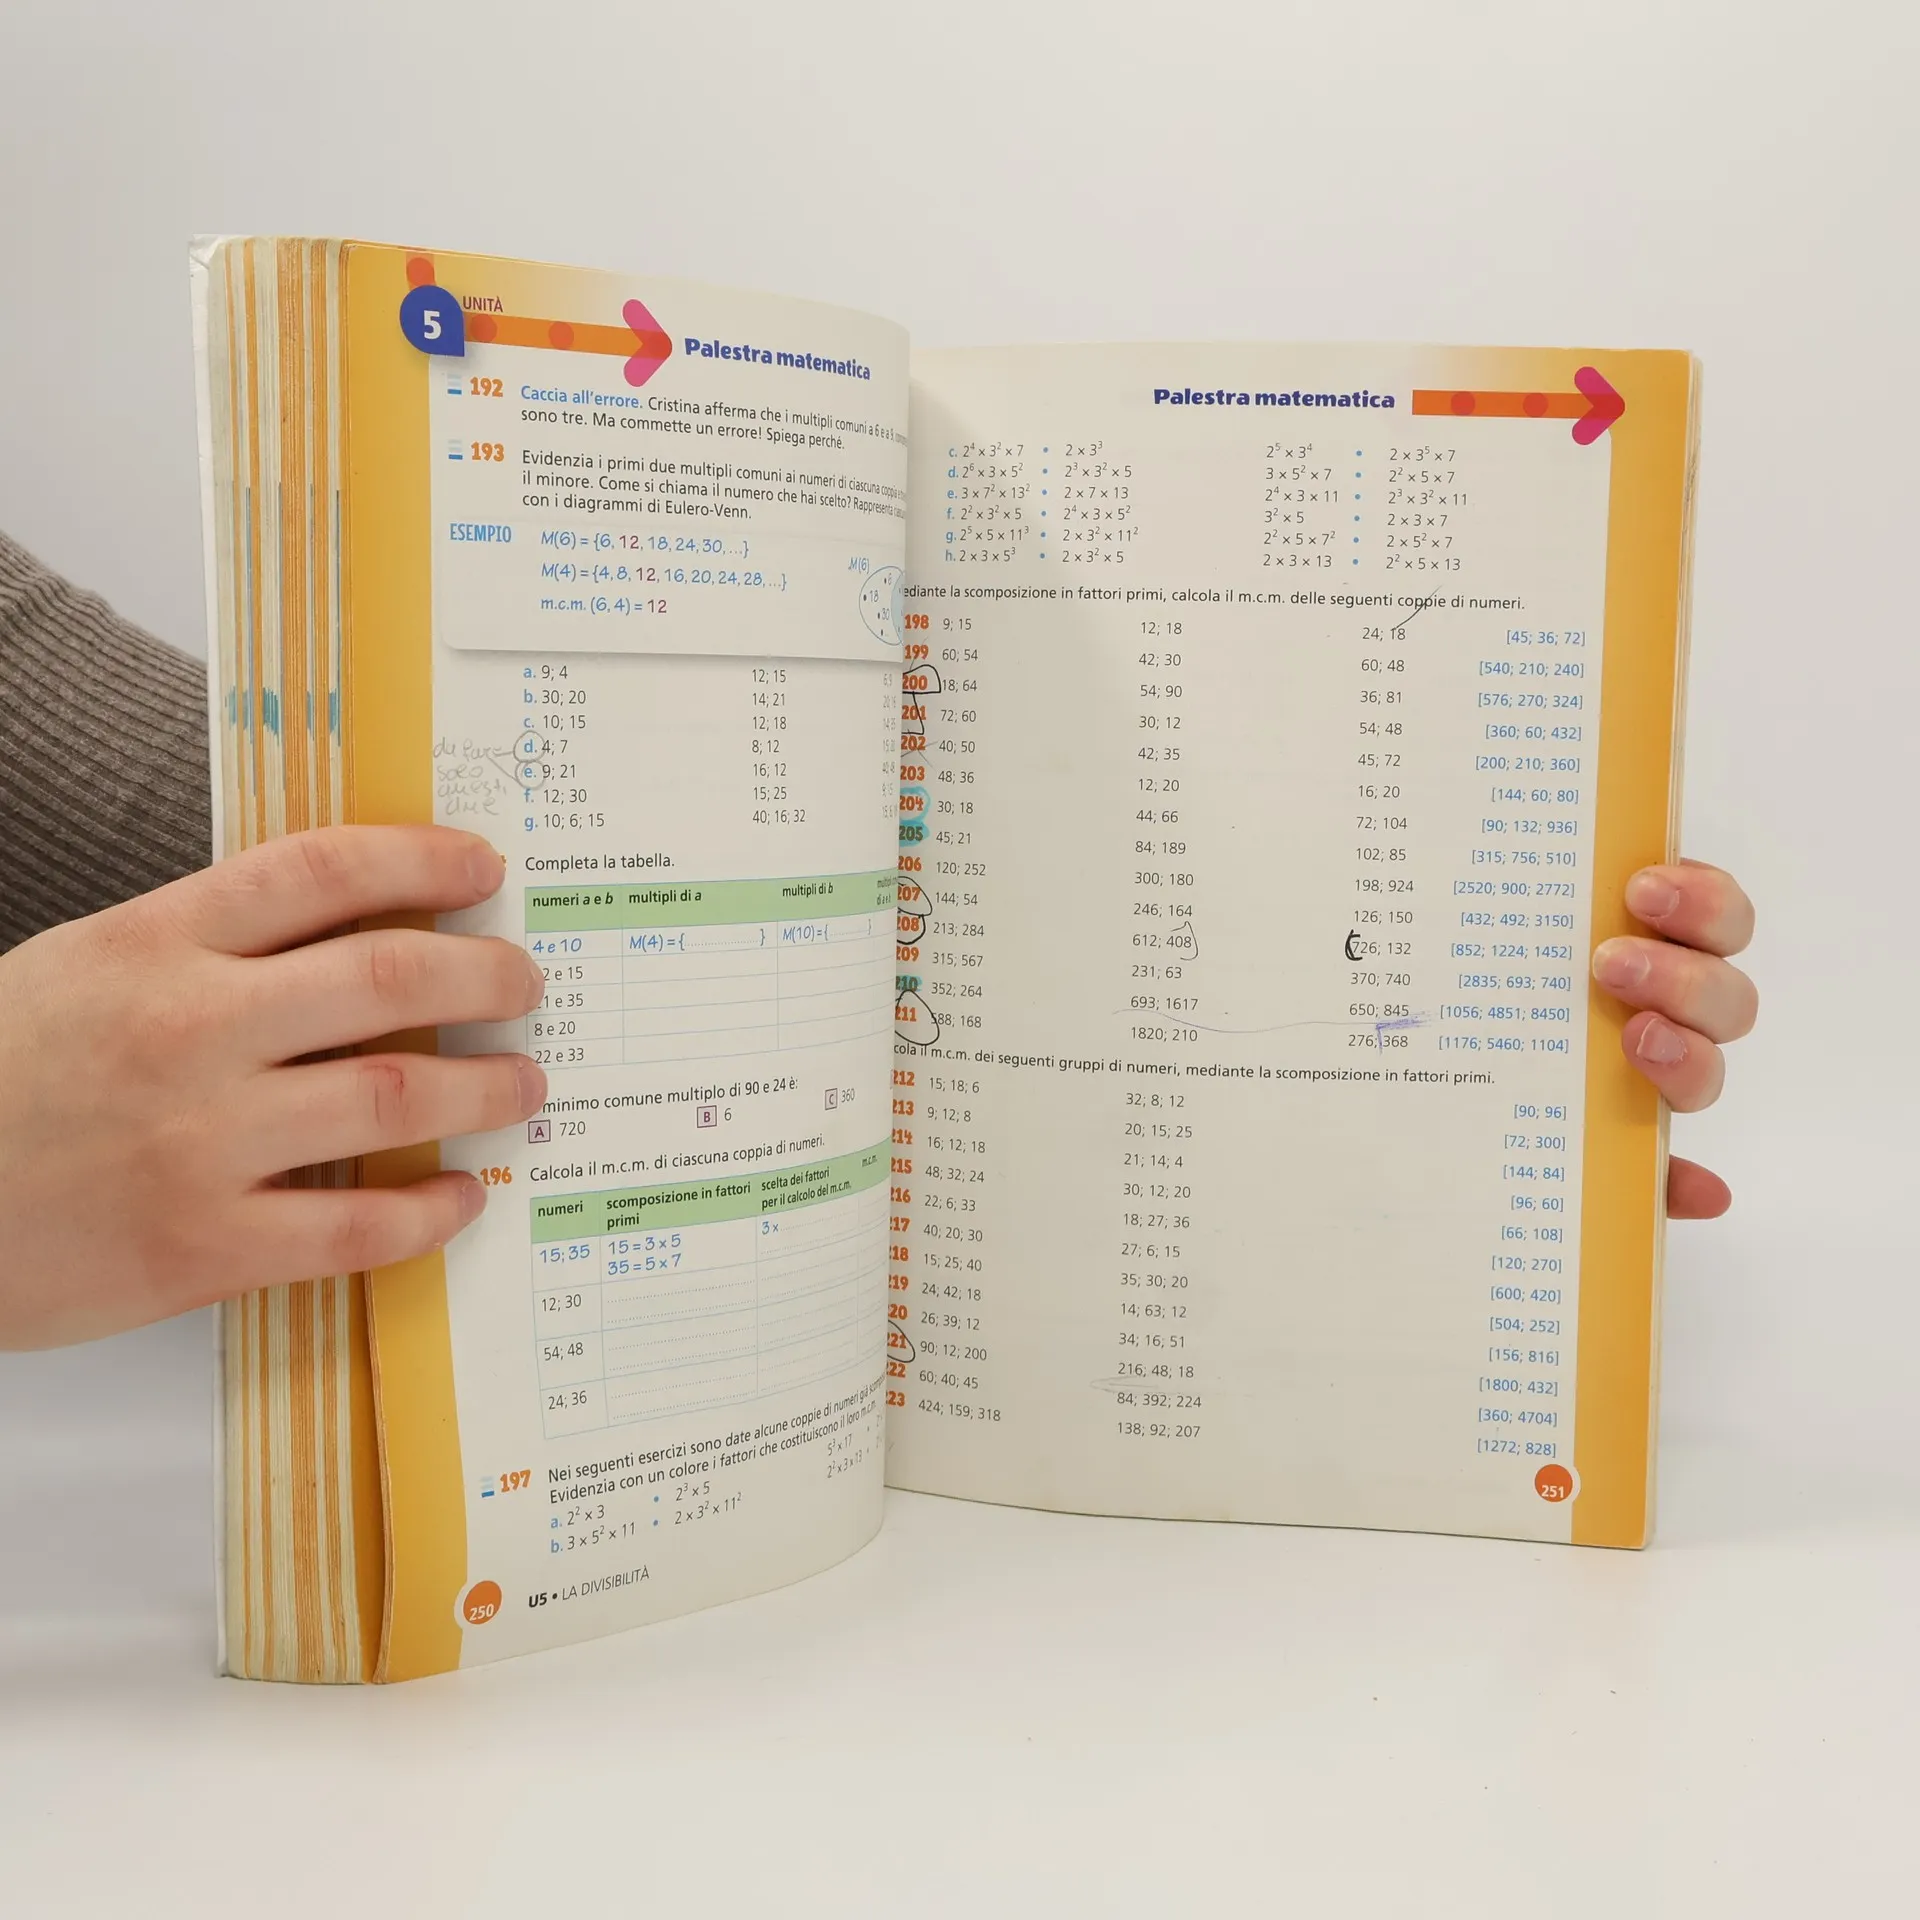 5
UNITÀ
Palestra matematica
192 Caccia all'errore. Cristina afferma che i multipli comuni a 6 e a 9
sono tre. Ma commette un errore! Spiega perché.
193 Evidenzia i primi due multipli comuni ai numeri di ciascuna coppia e
il minore. Come si chiama il numero che hai scelto? Rappresenta
con i diagrammi di Eulero-Venn.
ESEMPIO M(6) = {6, 12, 18, 24, 30, ...}
M(4) = {4, 8, 12, 16, 20, 24, 28, ...}
m.c.m. (6, 4) = 12
M(6)
6
18
30
a. 9; 4 12; 15 6; 9
b. 30; 20 14; 21
c. 10; 15 12; 18
d. 4; 7 8; 12
e. 9; 21 16; 12
f. 12; 30 15; 25
g. 10; 6; 15 40; 16; 32
da fare
solo
questi
due
Completa la tabella.
numeri a e b multipli di a multipli di b
4 e 10 M(4) = { } M(10) = { }
2 e 15
1 e 35
8 e 20
22 e 33
minimo comune multiplo di 90 e 24 è:
A 720 B 6 C 360
196 Calcola il m.c.m. di ciascuna coppia di numeri.
numeri scomposizione in fattori primi scelta dei fattori per il calcolo del m.c.m. m.c.m.
15; 35 15 = 3 × 5 3 ×
35 = 5 × 7
12; 30
54; 48
24; 36
197 Nei seguenti esercizi sono date alcune coppie di numeri già
Evidenzia con un colore i fattori che costituiscono il loro m.c.m.
a. 2² × 3 • 2³ × 5 5³ × 17
b. 3 × 5² × 11 • 2 × 3² × 11² 2² × 3 × 13
250 U5 • LA DIVISIBILITÀ
Palestra matematica
c. 2⁴ × 3² × 7 • 2 × 3³ 2⁵ × 3⁴ • 2 × 3⁵ × 7
d. 2⁶ × 3 × 5² • 2³ × 3² × 5 3 × 5² × 7 • 2² × 5 × 7
e. 3 × 7² × 13² • 2 × 7 × 13 2⁴ × 3 × 11 • 2³ × 3² × 11
f. 2² × 3² × 5 • 2⁴ × 3 × 5² 3² × 5 • 2 × 3 × 7
g. 2⁵ × 5 × 11³ • 2 × 3² × 11² 2² × 5 × 7² • 2 × 5² × 7
h. 2 × 3 × 5³ • 2 × 3² × 5 2 × 3 × 13 • 2² × 5 × 13
ediante la scomposizione in fattori primi, calcola il m.c.m. delle seguenti coppie di numeri.
198 9; 15 12; 18 24; 18 [45; 36; 72]
199 60; 54 42; 30 60; 48 [540; 210; 240]
200 18; 64 54; 90 36; 81 [576; 270; 324]
201 72; 60 30; 12 54; 48 [360; 60; 432]
202 40; 50 42; 35 45; 72 [200; 210; 360]
203 48; 36 12; 20 16; 20 [144; 60; 80]
204 30; 18 44; 66 72; 104 [90; 132; 936]
205 45; 21 84; 189 102; 85 [315; 756; 510]
206 120; 252 300; 180 198; 924 [2520; 900; 2772]
207 144; 54 246; 164 126; 150 [432; 492; 3150]
208 213; 284 612; 408 726; 132 [852; 1224; 1452]
209 315; 567 231; 63 370; 740 [2835; 693; 740]
210 352; 264 693; 1617 650; 845 [1056; 4851; 8450]
211 588; 168 1820; 210 276; 368 [1176; 5460; 1104]
cola il m.c.m. dei seguenti gruppi di numeri, mediante la scomposizione in fattori primi.
212 15; 18; 6 32; 8; 12 [90; 96]
213 9; 12; 8 20; 15; 25 [72; 300]
214 16; 12; 18 21; 14; 4 [144; 84]
215 48; 32; 24 30; 12; 20 [96; 60]
216 22; 6; 33 18; 27; 36 [66; 108]
217 40; 20; 30 27; 6; 15 [120; 270]
218 15; 25; 40 35; 30; 20 [600; 420]
219 24; 42; 18 14; 63; 12 [504; 252]
220 26; 39; 12 34; 16; 51 [156; 816]
221 90; 12; 200 216; 48; 18 [1800; 432]
222 60; 40; 45 84; 392; 224 [360; 4704]
223 424; 159; 318 138; 92; 207 [1272; 828]
251